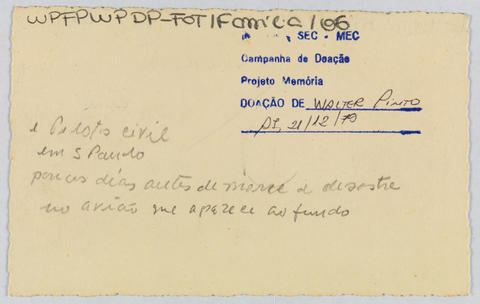 WPFPWPDP-FOT/Fonica/06
SEC - MEC
Campanha de Doação
Projeto Memória
DOAÇÃO DE WALTER PINTO
21/12/79
e Piloto civil
em S Paulo
poucos dias antes de morrer e desastre
no avião que aparece ao fundo